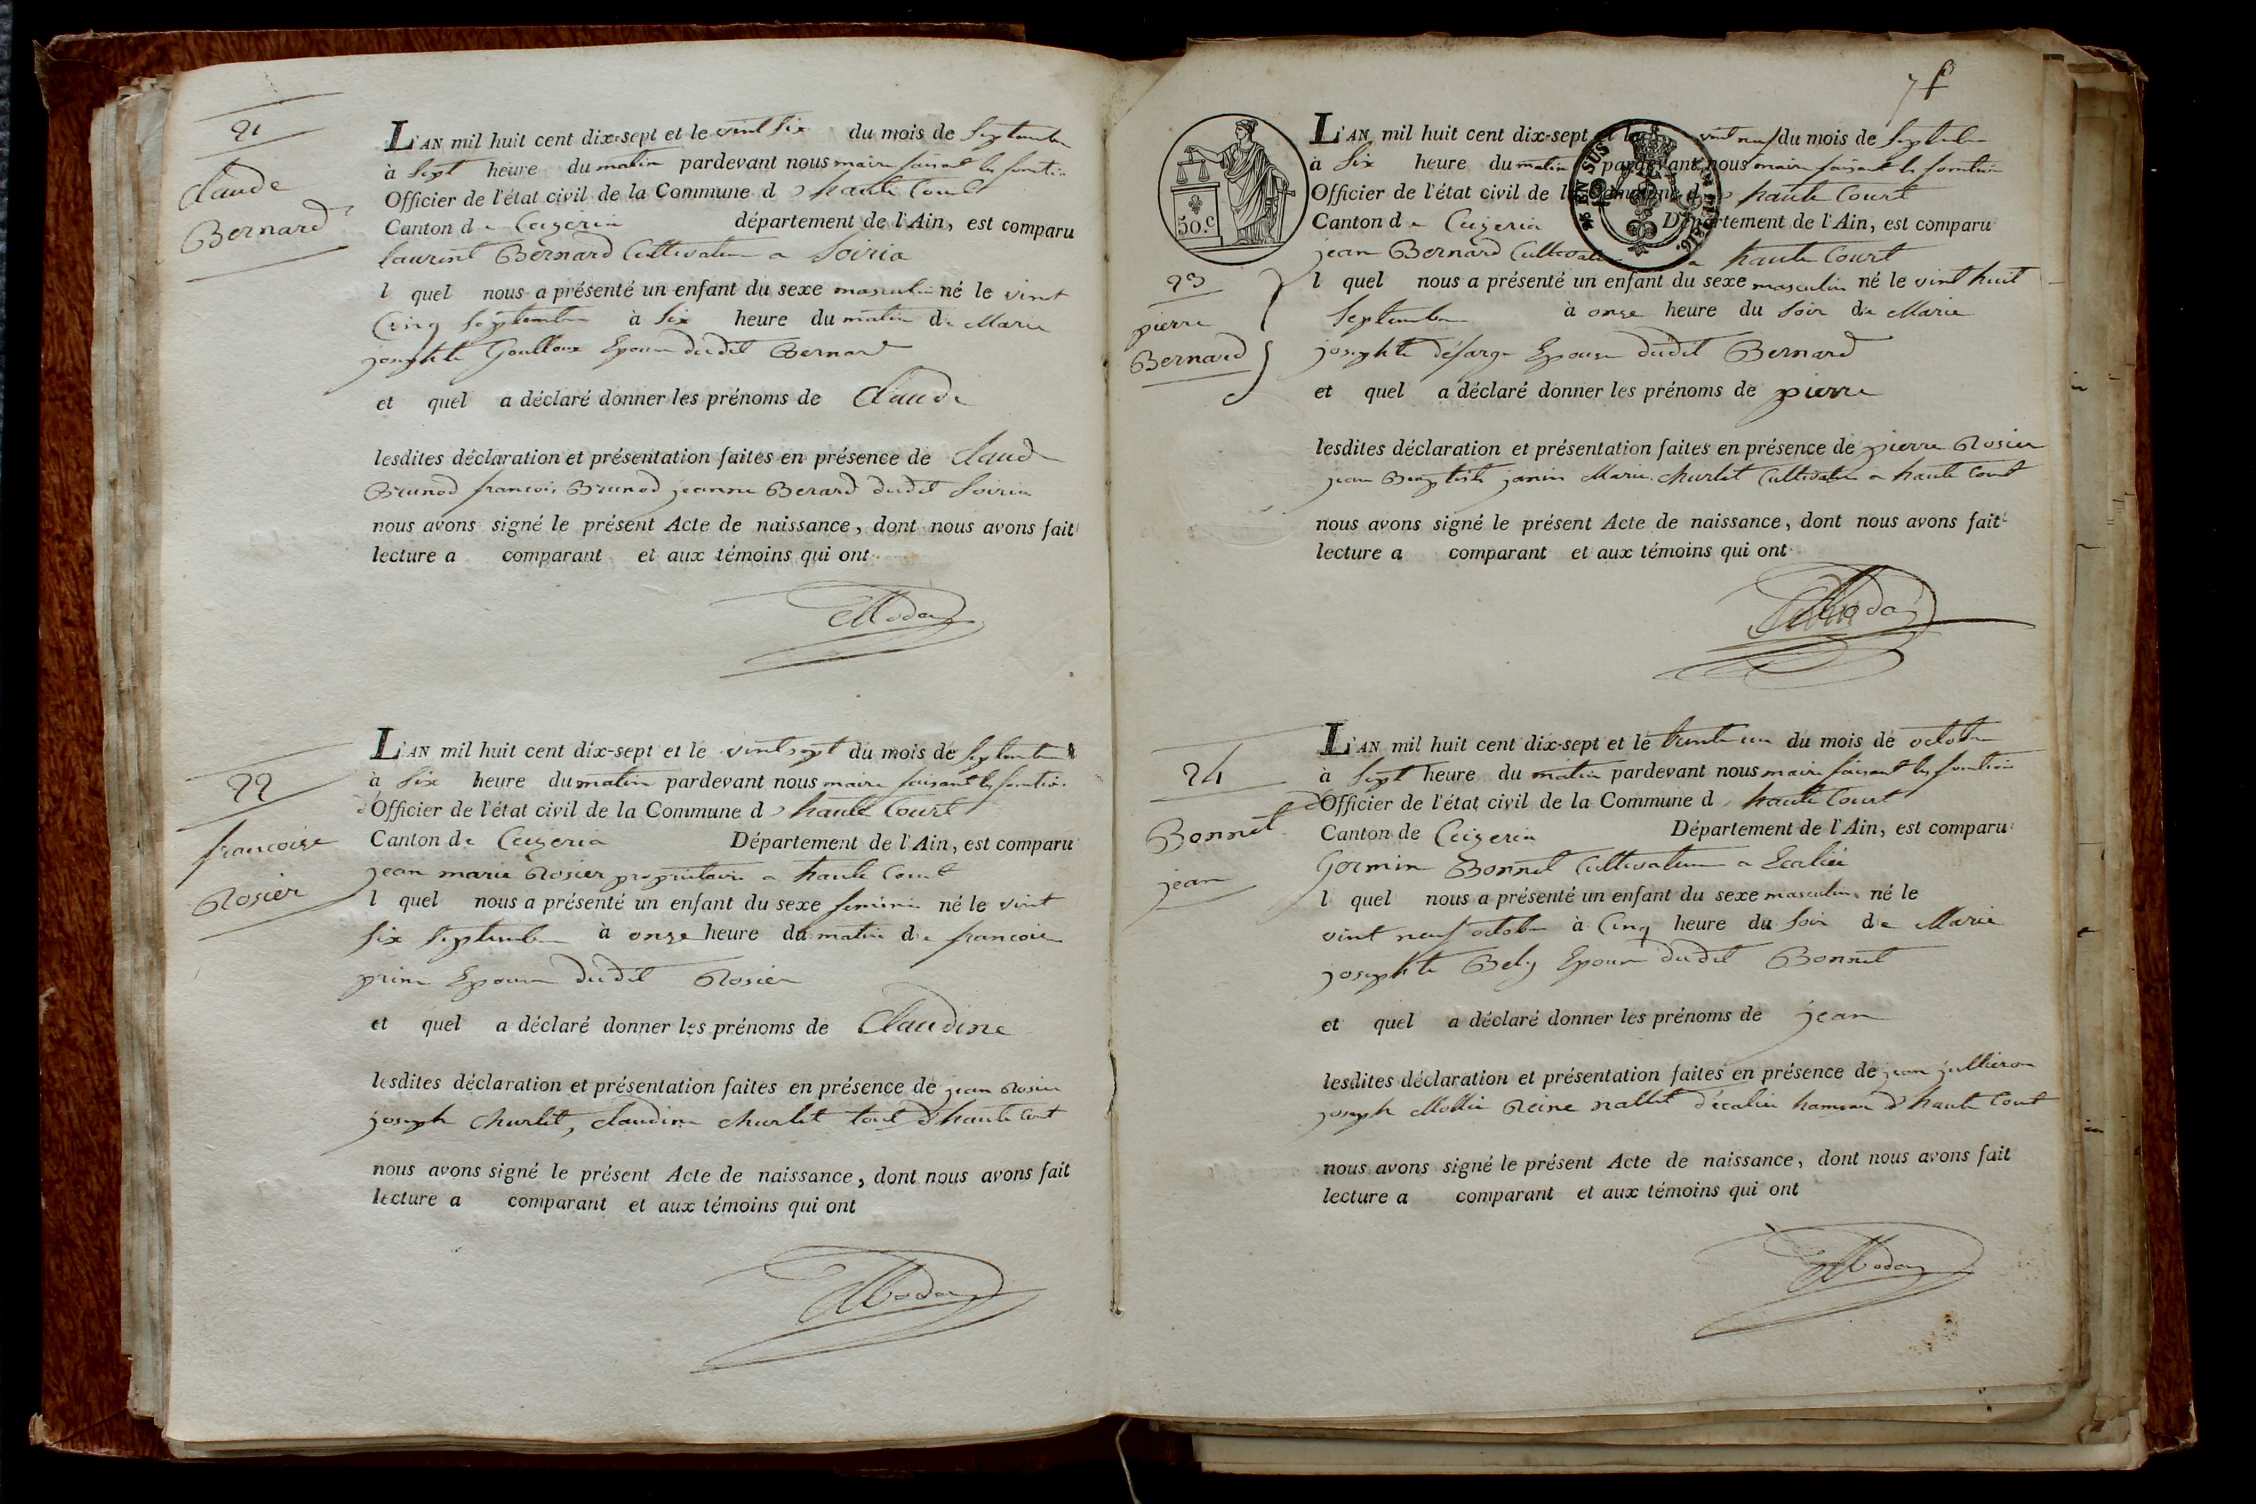 21
Claude
Bernard
L'AN mil huit cent dix-sept et le vint six du mois de Septembre
à Sept heure du matin pardevant nous maire faisant les fonction
Officier de l'état civil de la Commune d haute Court
Canton de Ceizeria département de l'Ain, est comparu
laurent Bernard Cultivateur a Soiria
l quel nous a présenté un enfant du sexe masculin né le vint
Cinq Septembre à Six heure du matin de Marie
josephte Goulloux Epouse dudit Bernard
et quel a déclaré donner les prénoms de Claude
lesdites déclaration et présentation faites en présence de Claude
Brunod francois Brunod jeanne Berard dudit Soiria
nous avons signé le présent Acte de naissance, dont nous avons fait
lecture a comparant et aux témoins qui ont
22
francoise
Rosier
L'AN mil huit cent dix-sept et le vint sept du mois de Septembre
à Six heure du matin pardevant nous maire faisant les fonction
d'Officier de l'état civil de la Commune d haute Court
Canton de Ceizeria Département de l'Ain, est comparu
jean marie Rosier proprietaire a haute Court
l quel nous a présenté un enfant du sexe feminin né le vint
Six Septembre à onze heure du matin de francoise
prin Epouse dudit Rosier
et quel a déclaré donner les prénoms de Claudine
lesdites déclaration et présentation faites en présence de jean Rosier
joseph Churlet, claudine churlet tout d'haute Court
nous avons signé le présent Acte de naissance, dont nous avons fait
lecture a comparant et aux témoins qui ont
7
50.c
EN SUS
23
pierre
Bernard
L'AN mil huit cent dix-sept et le vint neuf du mois de Septembre
à Six heure du matin pardevant nous maire faisant les fonction
Officier de l'état civil de la Commune d haute Court
Canton de Ceizeria Département de l'Ain, est comparu
jean Bernard Cultivateur a haute Court
l quel nous a présenté un enfant du sexe masculin né le vint huit
Septembre à onze heure du Soir de Marie
josephte désarge Epouse dudit Bernard
et quel a déclaré donner les prénoms de pierre
lesdites déclaration et présentation faites en présence de pierre Rosier
jean Baptiste janin Marie Churlet Cultivateur a haute Court
nous avons signé le présent Acte de naissance, dont nous avons fait
lecture a comparant et aux témoins qui ont
24
Bonnet
jean
L'AN mil huit cent dix-sept et le trente un du mois de octobre
à Sept heure du matin pardevant nous maire faisant les fonction
d'Officier de l'état civil de la Commune d haute Court
Canton de Ceizeria Département de l'Ain, est comparu
Germin Bonnet Cultivateur a Ecalien
l quel nous a présenté un enfant du sexe masculin né le
vint neuf octobre à Cinq heure du Soir de Marie
josephte Bely Epouse dudit Bonnet
et quel a déclaré donner les prénoms de jean
lesdites déclaration et présentation faites en présence de jean jullieron
joseph Reine nallet d'ecalien hameau d'haute Court
nous avons signé le présent Acte de naissance, dont nous avons fait
lecture a comparant et aux témoins qui ont